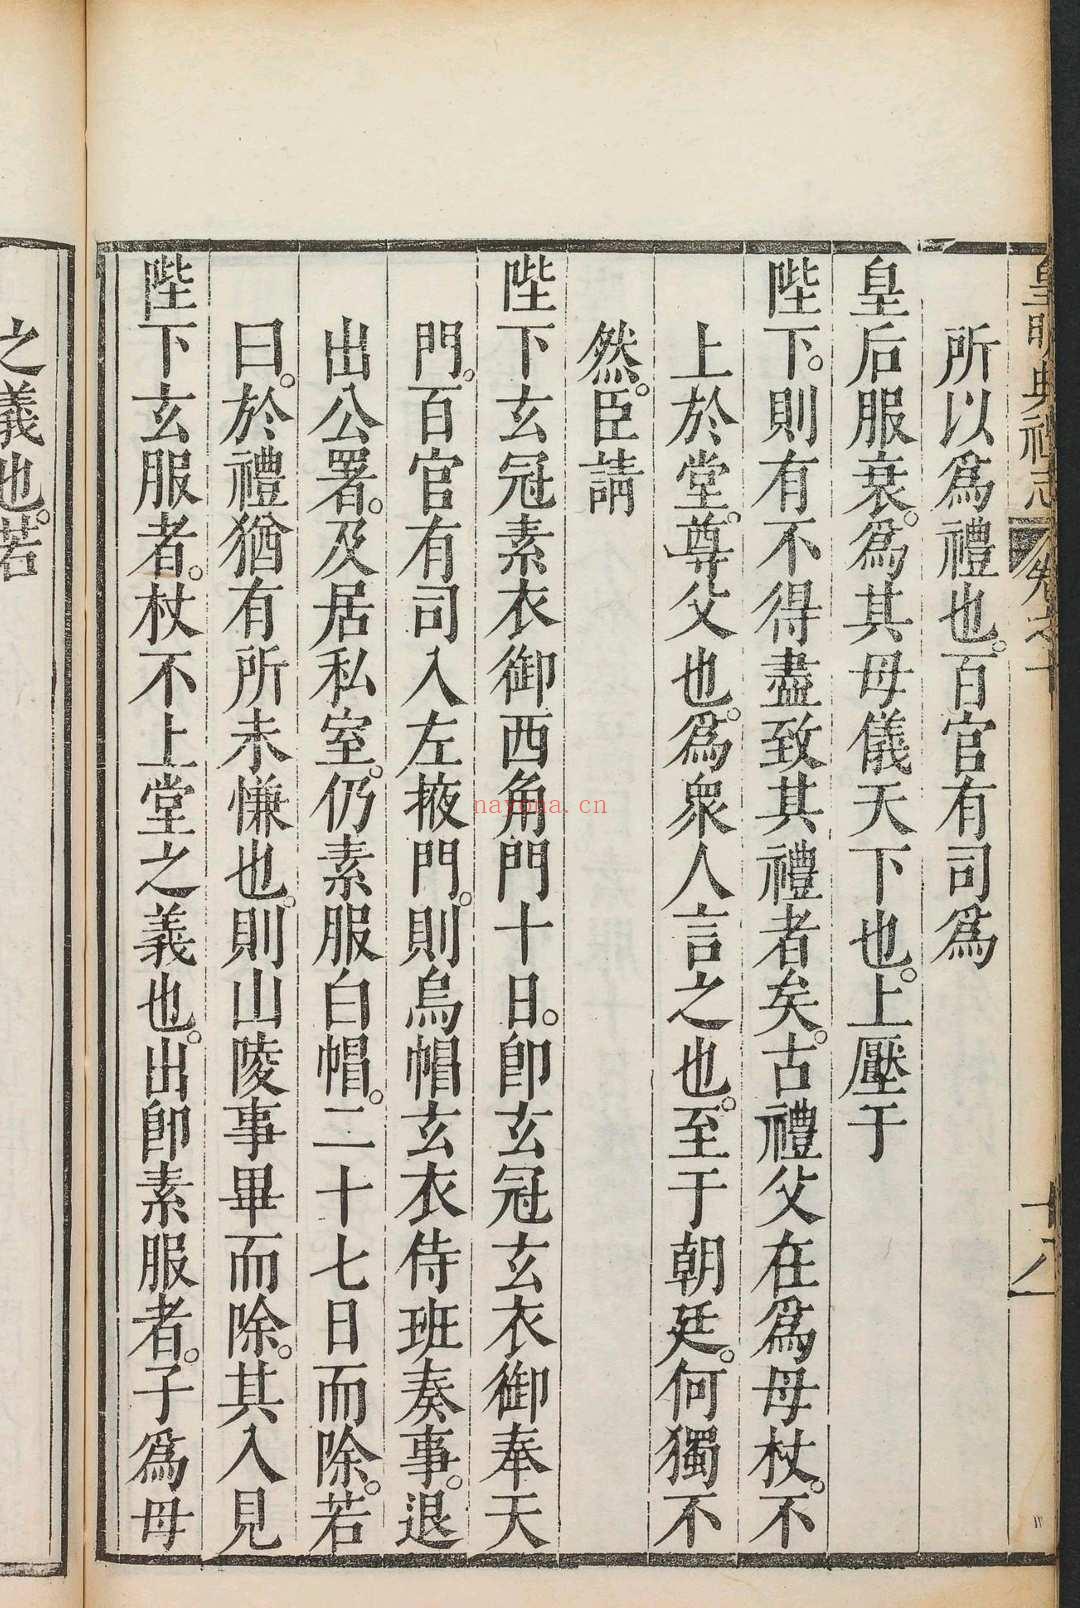 皇明典禮志 卷之十 十八
所以爲禮也。百官有司爲
皇后服衰。爲其母儀天下也。上壓于
陛下。則有不得盡致其禮者矣。古禮父在爲母杖。不
上於堂。尊父也。爲衆人言之也。至于朝廷。何獨不
然。臣請
陛下玄冠素衣御西角門十日。卽玄冠玄衣御奉天
門。百官有司入左掖門。則烏帽玄衣侍班奏事。退
出公署。及居私室。仍素服白帽。二十七日而除。若
曰。於禮猶有所未慊也。則山陵事畢而除。其入見
陛下玄服者。杖不上堂之義也。出卽素服者。子爲母
之義也。若
nayona.cn